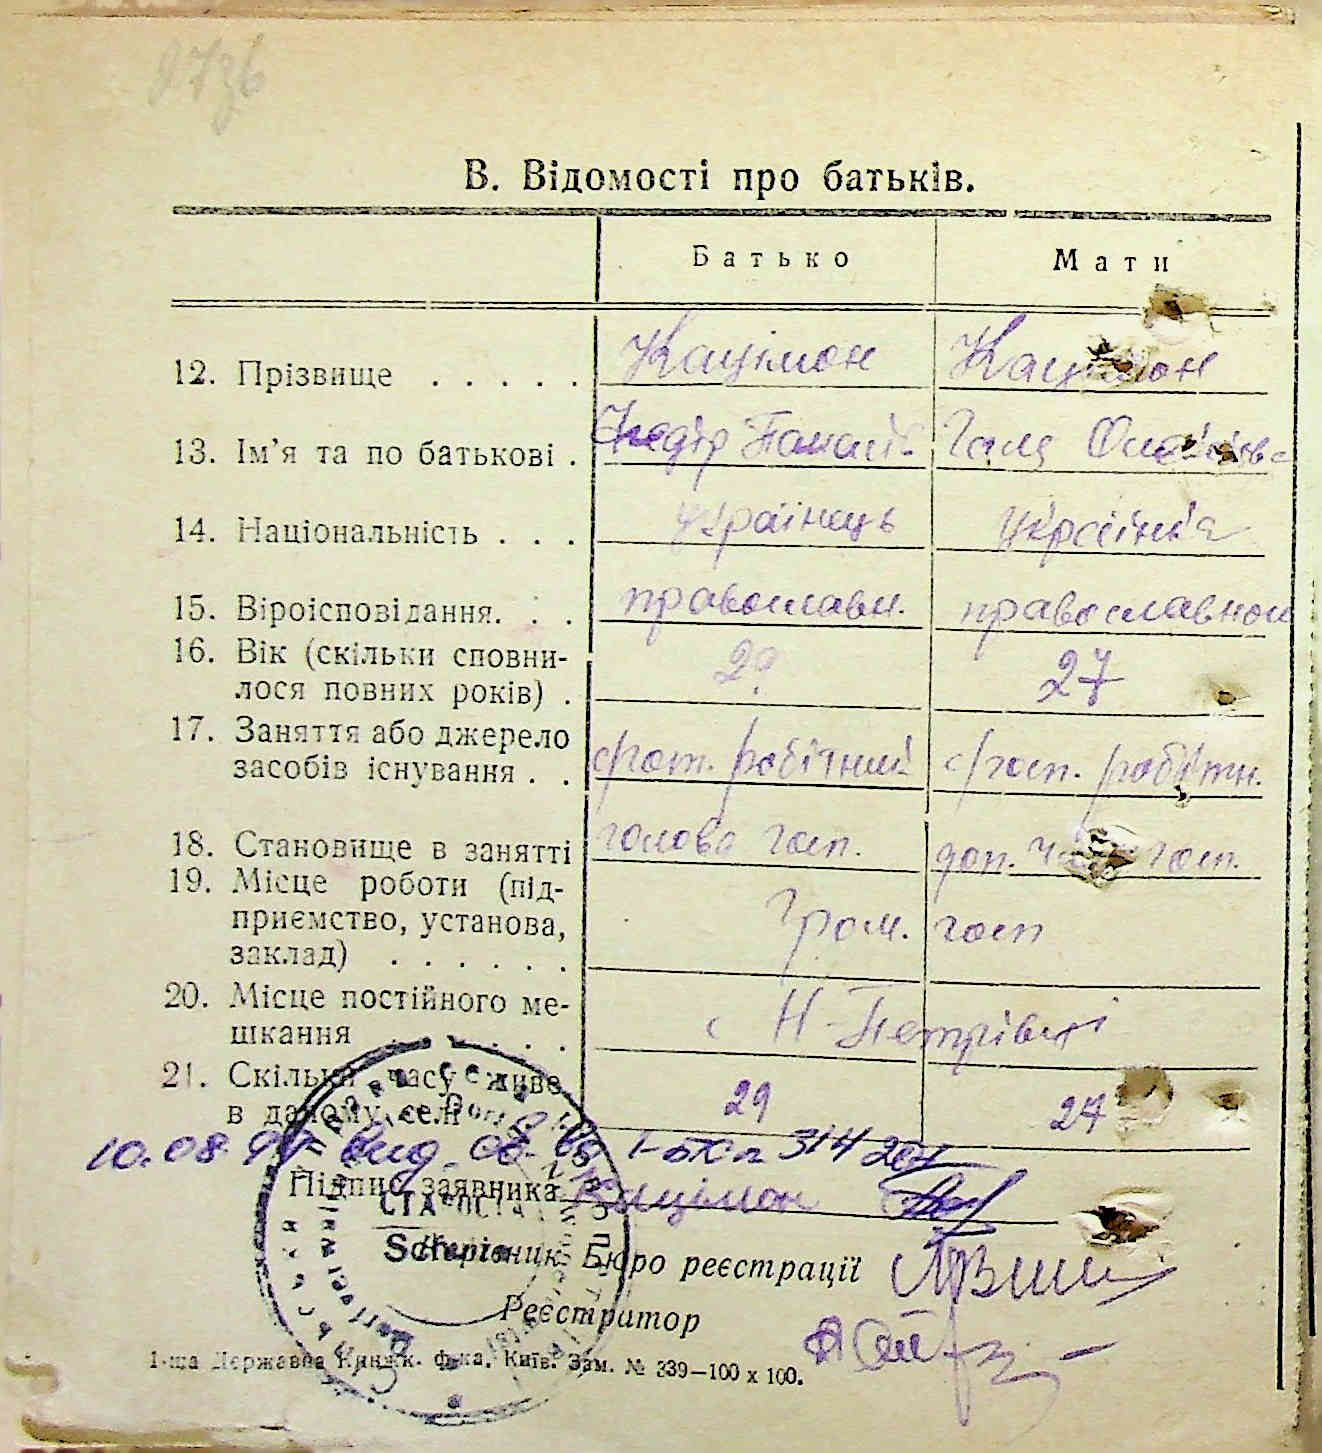 В. Відомості про батьків.
Батько Мати
12. Прізвище . . . . . Кацімон Кацімон
13. Ім'я та по батькові . Федір Панасів Галя
14. Національність . . . українець українка
15. Віроісповідання. . . православн. православної
16. Вік (скільки сповни-
лося повних років) . 29 27
17. Заняття або джерело
засобів існування . . робітник госп. робітн.
18. Становище в занятті голова госп. доп. госп.
19. Місце роботи (під-
приємство, установа,
заклад) . . . . . . Гром. госп
20. Місце постійного ме-
шкання . . . . . с Н-Петрівці
21. Скільки часу живе
в даному селі 29 27
10.08.94 вид
Підпис заявника Кацімон
СТАРОСТА
Керівник Бюро реєстрації
Реєстратор
1-ша Державна Книжк. ф-ка. Київ. Зам. № 339—100 x 100.